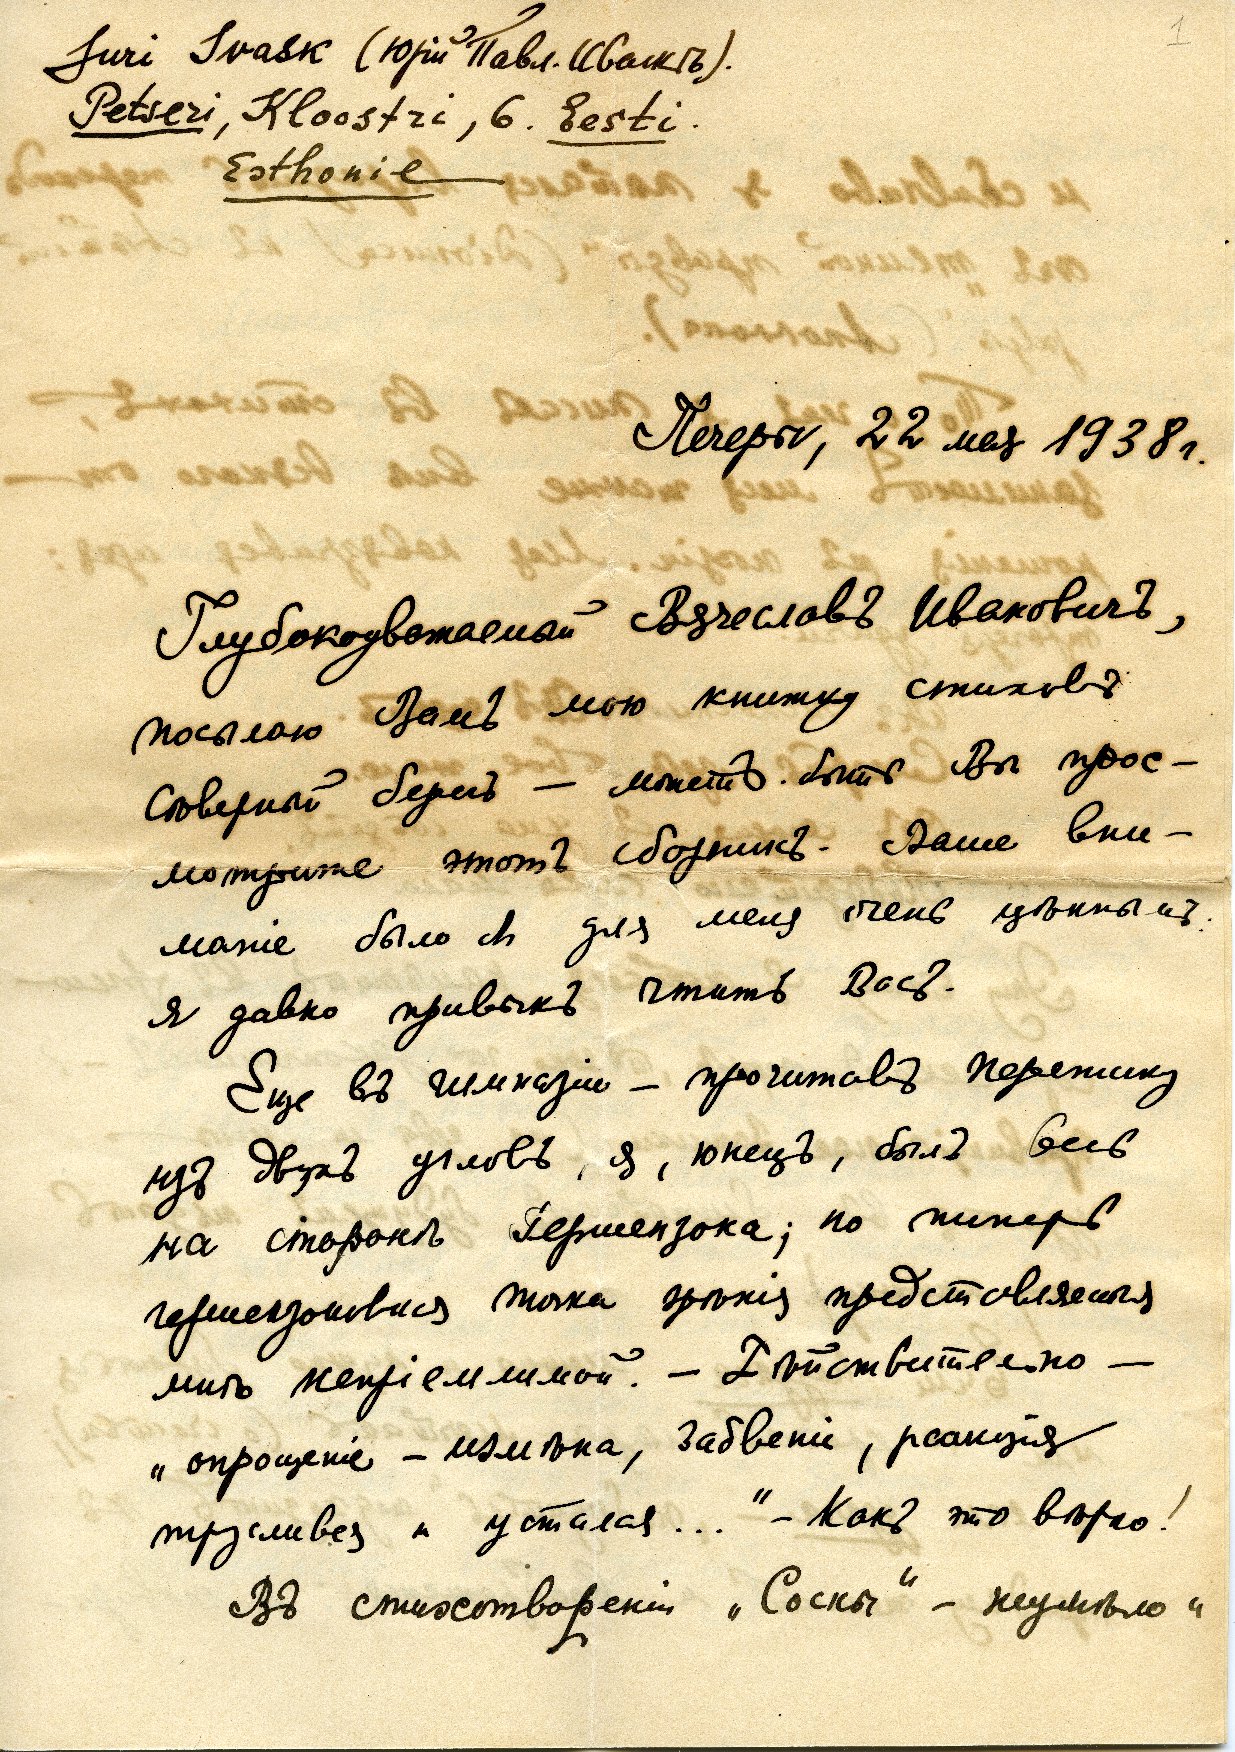 1
Juri Ivask (Юрій Павл. Иваскъ).
Petseri, Kloostri, 6. Eesti.
Esthonie
Печеры, 22 мая 1938 г.
Глубокоуважаемый Вячеславъ Ивановичъ,
посылаю Вамъ мою книжку стиховъ
Сѣверный берегъ — можетъ быть Вы прос-
мотрите этотъ сборникъ. Ваше вни-
маніе было б для меня очень цѣннымъ.
Я давно привыкъ чтить Васъ.
Еще въ гимназіи — прочитавъ Переписку
изъ двухъ угловъ, я, юнецъ, былъ весь
на сторонѣ Гершензона; но теперь
гершензоновская точка зрѣнія представляется
мнѣ непріемлимой. — Дѣйствительно —
„опрощеніе — измѣна, забвеніе, реакція
трусливая и усталая..." — Какъ это вѣрно!
Въ стихотвореніи „Сосны" — неумѣло и